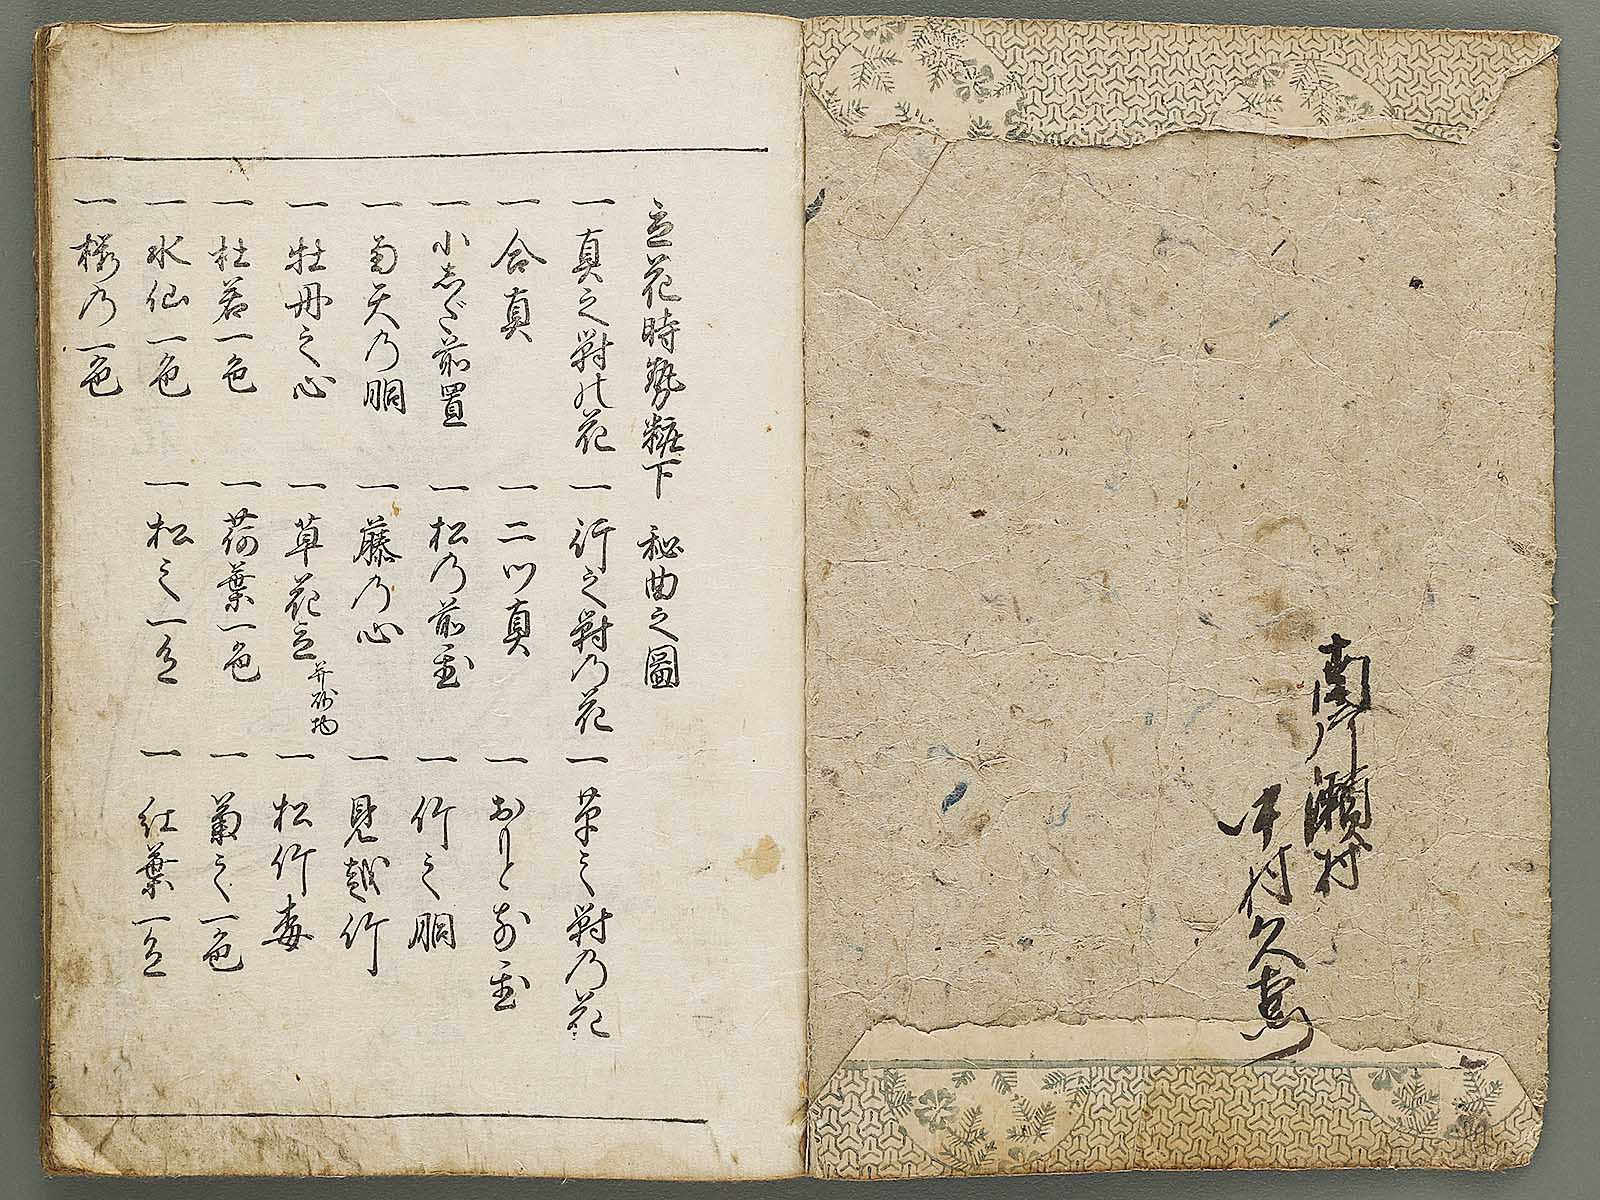 南川瀬村
中村久
立花時勢粧下 秘曲之圖
一真之對の花 一行之對乃花 一草之對乃花
一合真 一二ツ真 一おもと前置
一小志だ前置 一松乃前置 一竹之胴
一南天乃胴 一藤乃心 一見越竹
一牡丹之心 一草花立并砂物 一松竹梅
一杜若一色 一荷葉一色 一菊之一色
一水仙一色 一松之一色 一紅葉一色
一桜乃一色